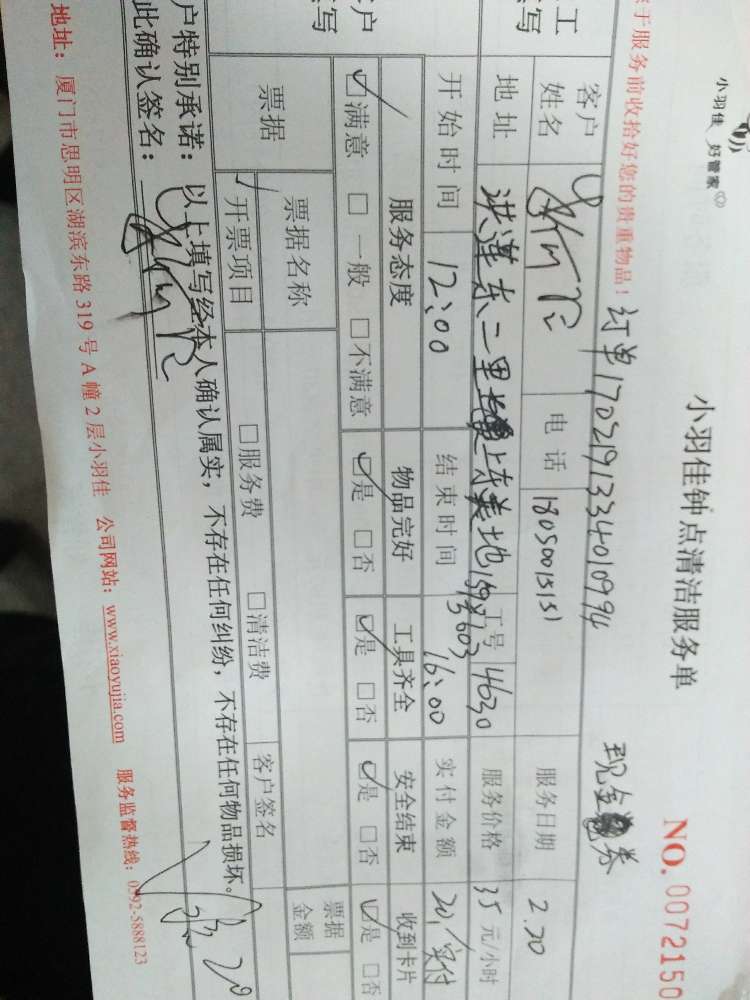 小羽佳 好管家
小羽佳钟点清洁服务单
NO. 0072150
于服务前收拾好您的贵重物品!
订单17021913340109994
现金券
工
写
客户
姓名
电话
18050015151
服务日期
2.20
地址
洪莲东二里 上东美地
603
工号
4630
服务价格
35元/小时
开始时间
12:00
结束时间
16:00
实付金额
实付
户
写
服务态度
物品完好
工具齐全
安全结束
收到卡片
☑满意 □一般 □不满意
☑是 □否
☑是 □否
☑是 □否
☑是 □否
票据
票据名称
□服务费 □清洁费
票据
金额
开票项目
客户签名
户特别承诺:以上填写经本人确认属实,不存在任何纠纷,不存在任何物品损坏。
此确认签名:
20
地址:厦门市思明区湖滨东路319号A幢2层小羽佳 公司网站:www.xiaoyujia.com 服务监督热线:0592-5888123